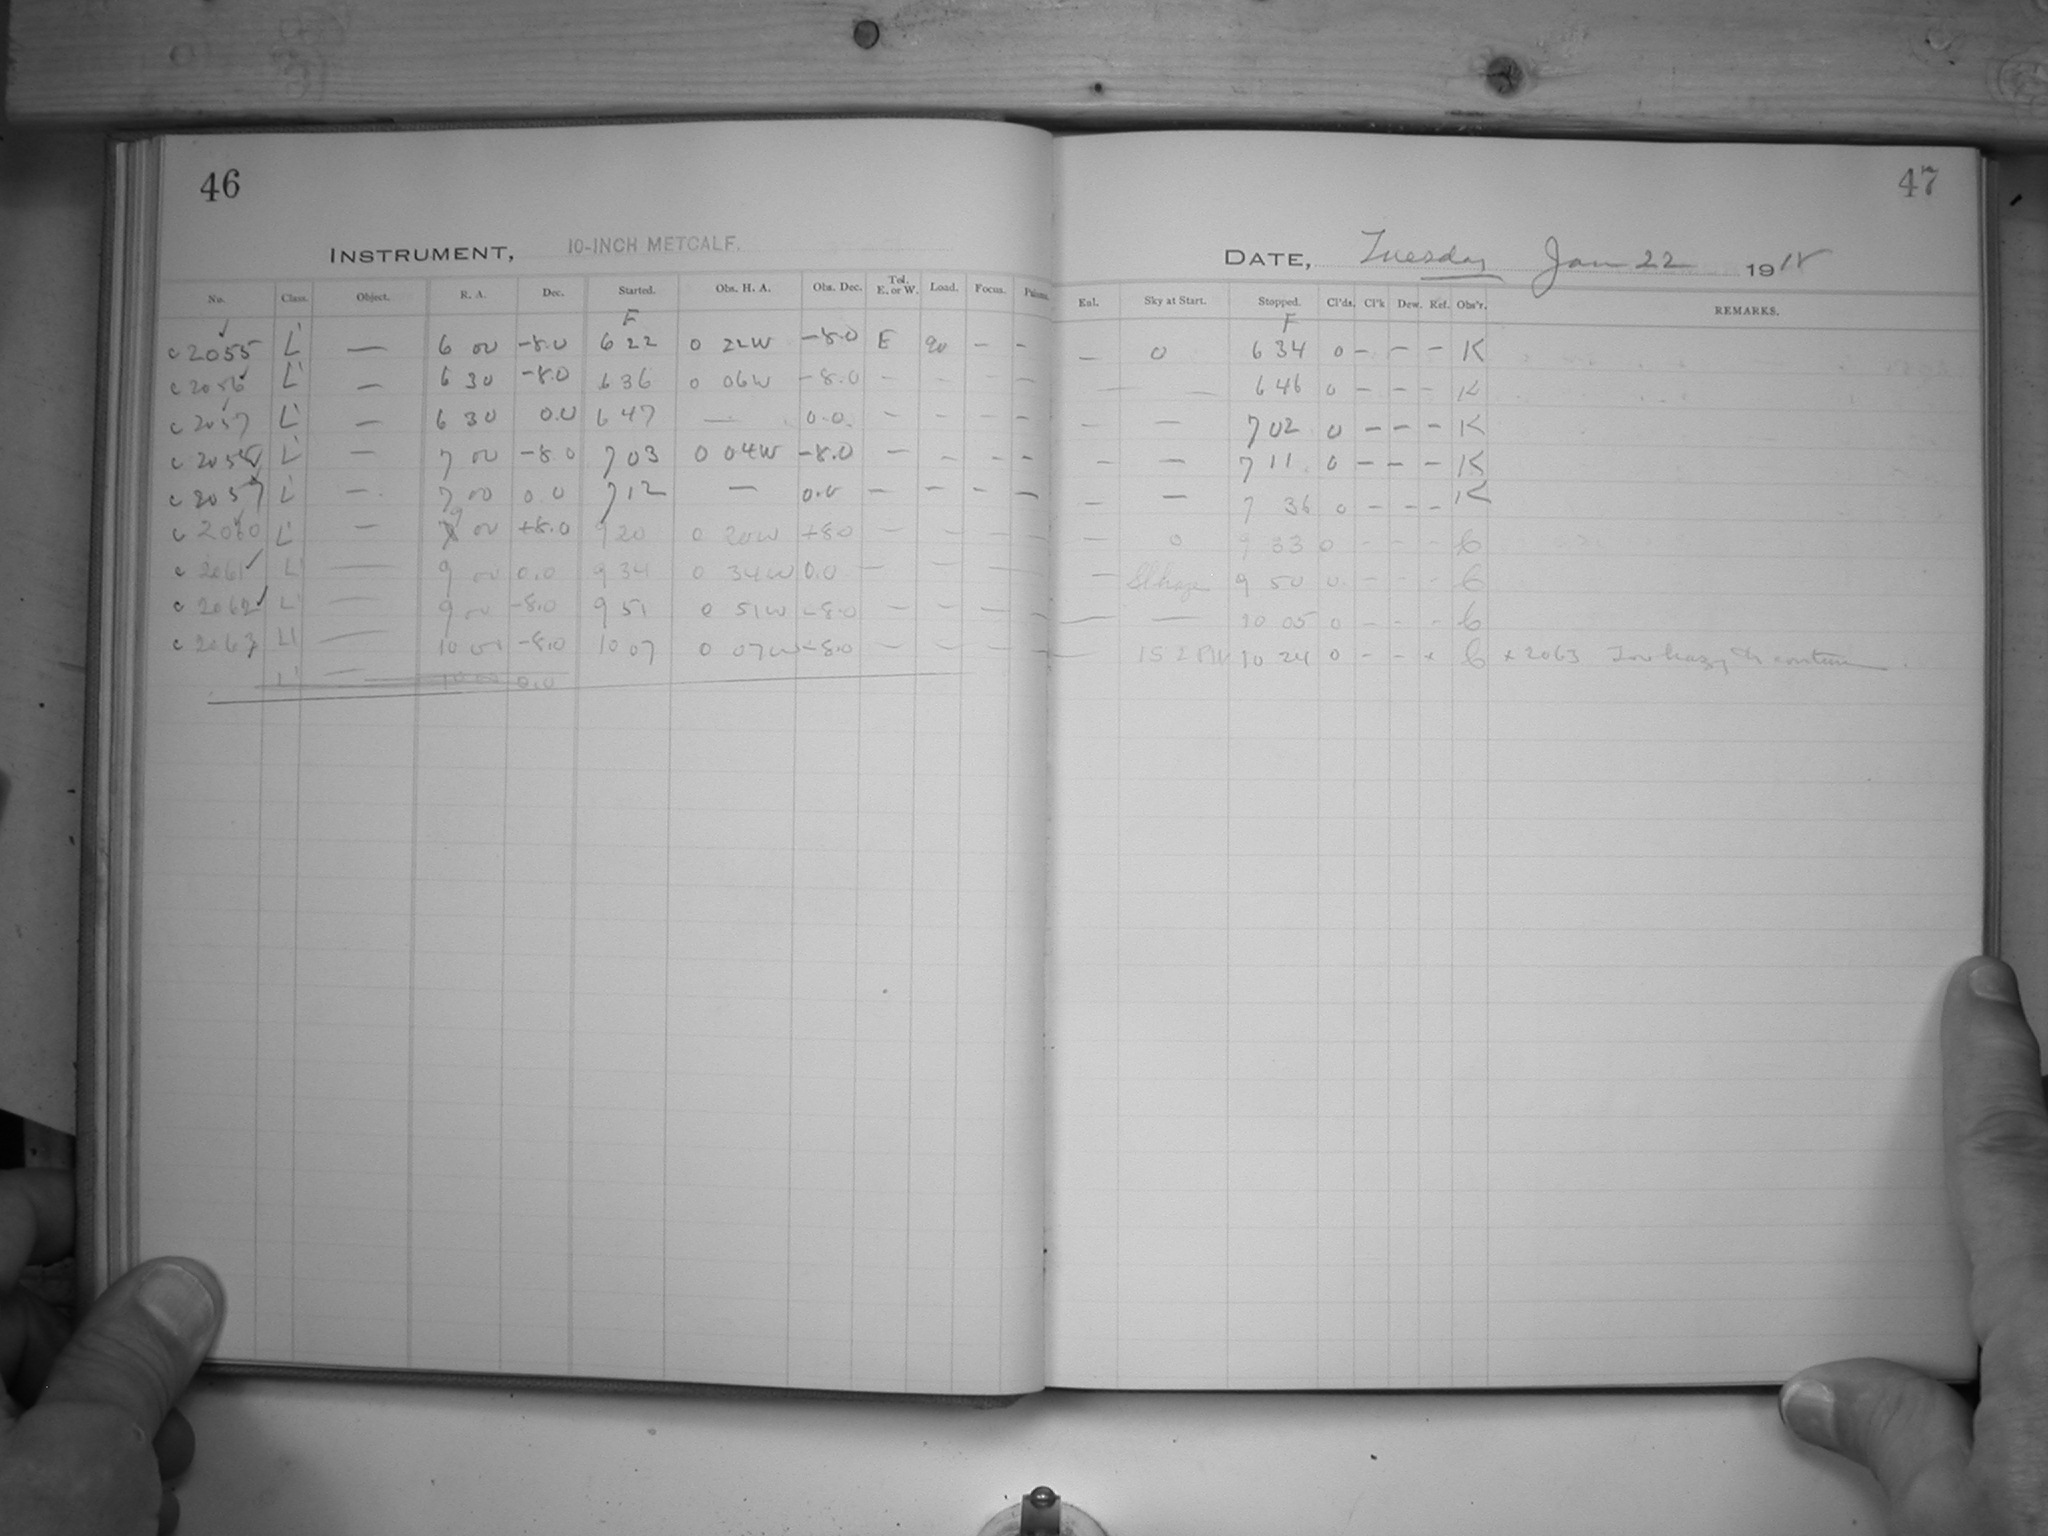 46
47
INSTRUMENT, 10-INCH METCALF.
DATE, Tuesday Jan 22 1918
No. Class. Object. R. A. Dec. Started. Obs. H. A. Obs. Dec. Tel. E. or W. Load. Focus. Eal. Sky at Start. Stopped. Cl'ds. Cl'k Dew. Ref. Obs'r. REMARKS.
F F
c 2055 L' — 6 00 -8.0 6 22 0 22W -8.0 E 90 - - — 0 6 34 0 - - - K
c 2056 L' — 6 30 -8.0 6 36 0 06W -8.0 - - - - — — 6 46 0 - - - K
c 2057 L' — 6 30 0.0 6 47 — 0.0 - - - - — — 7 02 0 - - - K
c 2058 L' — 7 00 -8.0 7 03 0 04W -8.0 - - - - — — 7 11 0 - - - K
c 2059 L' — 7 00 0.0 7 12 — 0.0 - - - - — — 7 36 0 - - - K
c 2060 L' — 9 00 +8.0 9 20 0 20W +8.0 - - - - — 0 9 33 0 - - - C
c 2061 L' — 9 00 0.0 9 34 0 34W 0.0 - - - - — Sl haze 9 50 0 - - - C
c 2062 L' — 9 00 -8.0 9 51 0 51W -8.0 - - - - — — 10 05 0 - - - C
c 2063 L' — 10 00 -8.0 10 07 0 07W -8.0 - - - - — 10 24 0 - - x C x 2063 Too hazy to continue.
L' — 10 00 0.0